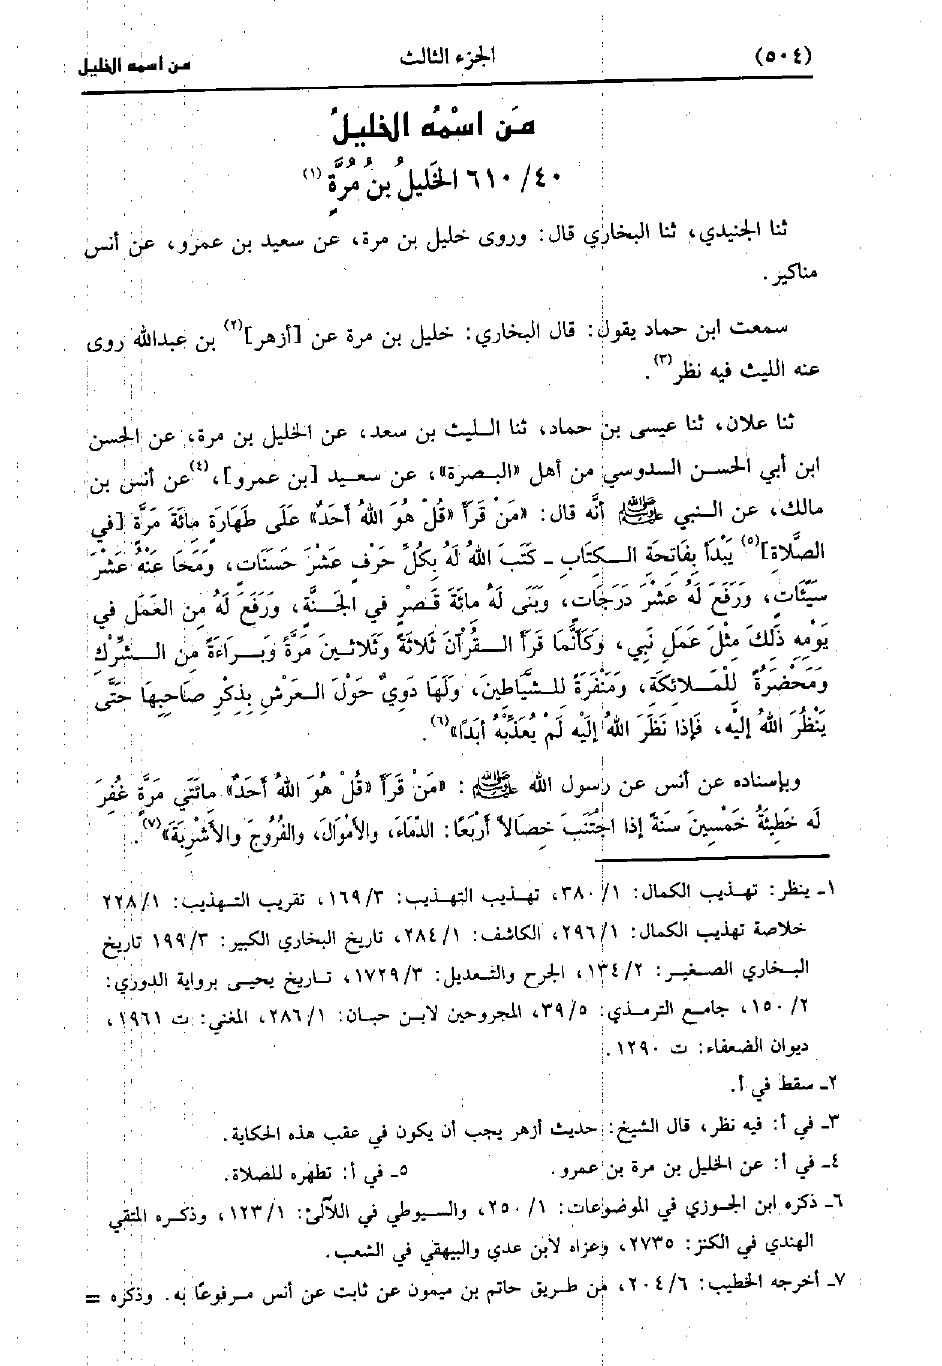 (٥٠٤)
الجزء الثالث
من اسمه الخليل
مَن اسْمُه الخليلُ
٦١٠/٤٠ الخَليلُ بنُ مُرَّةٍ (١)
ثنا الجنيدي، ثنا البخاري قال: وروى خليل بن مرة، عن سعيد بن عمرو، عن أنس
مناكير.
سمعت ابن حماد يقول: قال البخاري: خليل بن مرة عن [أزهر](٢) بن عبدالله روى
عنه الليث فيه نظر(٣).
ثنا علان، ثنا عيسى بن حماد، ثنا الليث بن سعد، عن الخليل بن مرة، عن الحسن
ابن أبي الحسن السدوسي من أهل «البصرة»، عن سعيد [بن عمرو]،(٤) عن أنس بن
مالك، عن النبي ﷺ أنَّه قال: «مَنْ قَرَأَ «قُلْ هُوَ اللهُ أَحَدٌ» عَلَى طَهَارَةٍ مِائَةَ مَرَّةٍ [في
الصَّلاةِ](٥) يَبْدَأُ بفَاتحَةِ الكتَابِ ـ كَتَبَ اللهُ لَهُ بكُلِّ حَرْفٍ عَشْرَ حَسَنَاتٍ، ومَحَا عنْهُ عَشْرَ
سَيِّئَاتٍ، ورَفَعَ لَهُ عَشْرَ دَرَجَاتٍ، وبَنَى لَهُ مائَةَ قَصْرٍ في الجَنَّة، ورَفَعَ لَهُ منَ العَمَل في
يَوْمِهِ ذَلِكَ مثْلَ عَمَلِ نَبي، وكَأَنَّمَا قَرَأَ القُرْآنَ ثَلاثَةً وثَلاثينَ مَرَّةً وبَراءَةً منَ الشِّرْكِ
ومَحْضَرَةً للْمَلائكَة، ومَنْفَرَةً للشَّيَاطين، ولَهَا دَويٌّ حَوْلَ العَرْشِ بذِكْرِ صَاحبهَا حَتَّى
يَنْظُرَ اللهُ إليْه، فَإذا نَظَرَ اللهُ إلَيْه لَمْ يُعَذِّبْهُ أبَدًا»(٦).
وبإسناده عن أنس عن رسول الله ﷺ : «مَنْ قَرَأَ «قُلْ هُوَ اللهُ أَحَدٌ» مائَتَي مَرَّةٍ غُفِرَ
لَه خَطِيئَةُ خَمْسينَ سَنَةً إذا اجْتَنَبَ خصَالاً أرْبَعًا: الدِّمَاءَ، والأمْوَالَ، والفُرُوجَ والأشْربَةَ»(٧).
١ـ ينظر: تهذيب الكمال: ٣٨٠/١، تهذيب التهذيب: ١٦٩/٣، تقريب التهذيب: ٢٢٨/١
خلاصة تهذيب الكمال: ٢٩٦/١، الكاشف: ٢٨٤/١، تاريخ البخاري الكبير: ١٩٩/٣ تاريخ
البخاري الصغير: ١٣٤/٢، الجرح والتعديل: ١٧٢٩/٣، تاريخ يحيى برواية الدوري:
١٥٠/٢، جامع الترمذي: ٣٩/٥، المجروحين لابن حبان: ٢٨٦/١، المغني: ت ١٩٦١،
ديوان الضعفاء: ت ١٢٩٠.
٢ـ سقط في أ.
٣ـ في أ: فيه نظر، قال الشيخ: حديث أزهر يجب أن يكون في عقب هذه الحكاية.
٤ـ في أ: عن الخليل بن مرة بن عمرو. ٥ـ في أ: تطهره للصلاة.
٦ـ ذكره ابن الجوزي في الموضوعات: ٢٥٠/١، والسيوطي في اللآلئ: ١٢٣/١، وذكره المتقي
الهندي في الكنز: ٢٧٣٥، وعزاه لابن عدي والبيهقي في الشعب.
٧ـ أخرجه الخطيب: ٢٠٤/٦، من طريق حاتم بن ميمون عن ثابت عن أنس مرفوعًا به. وذكره =